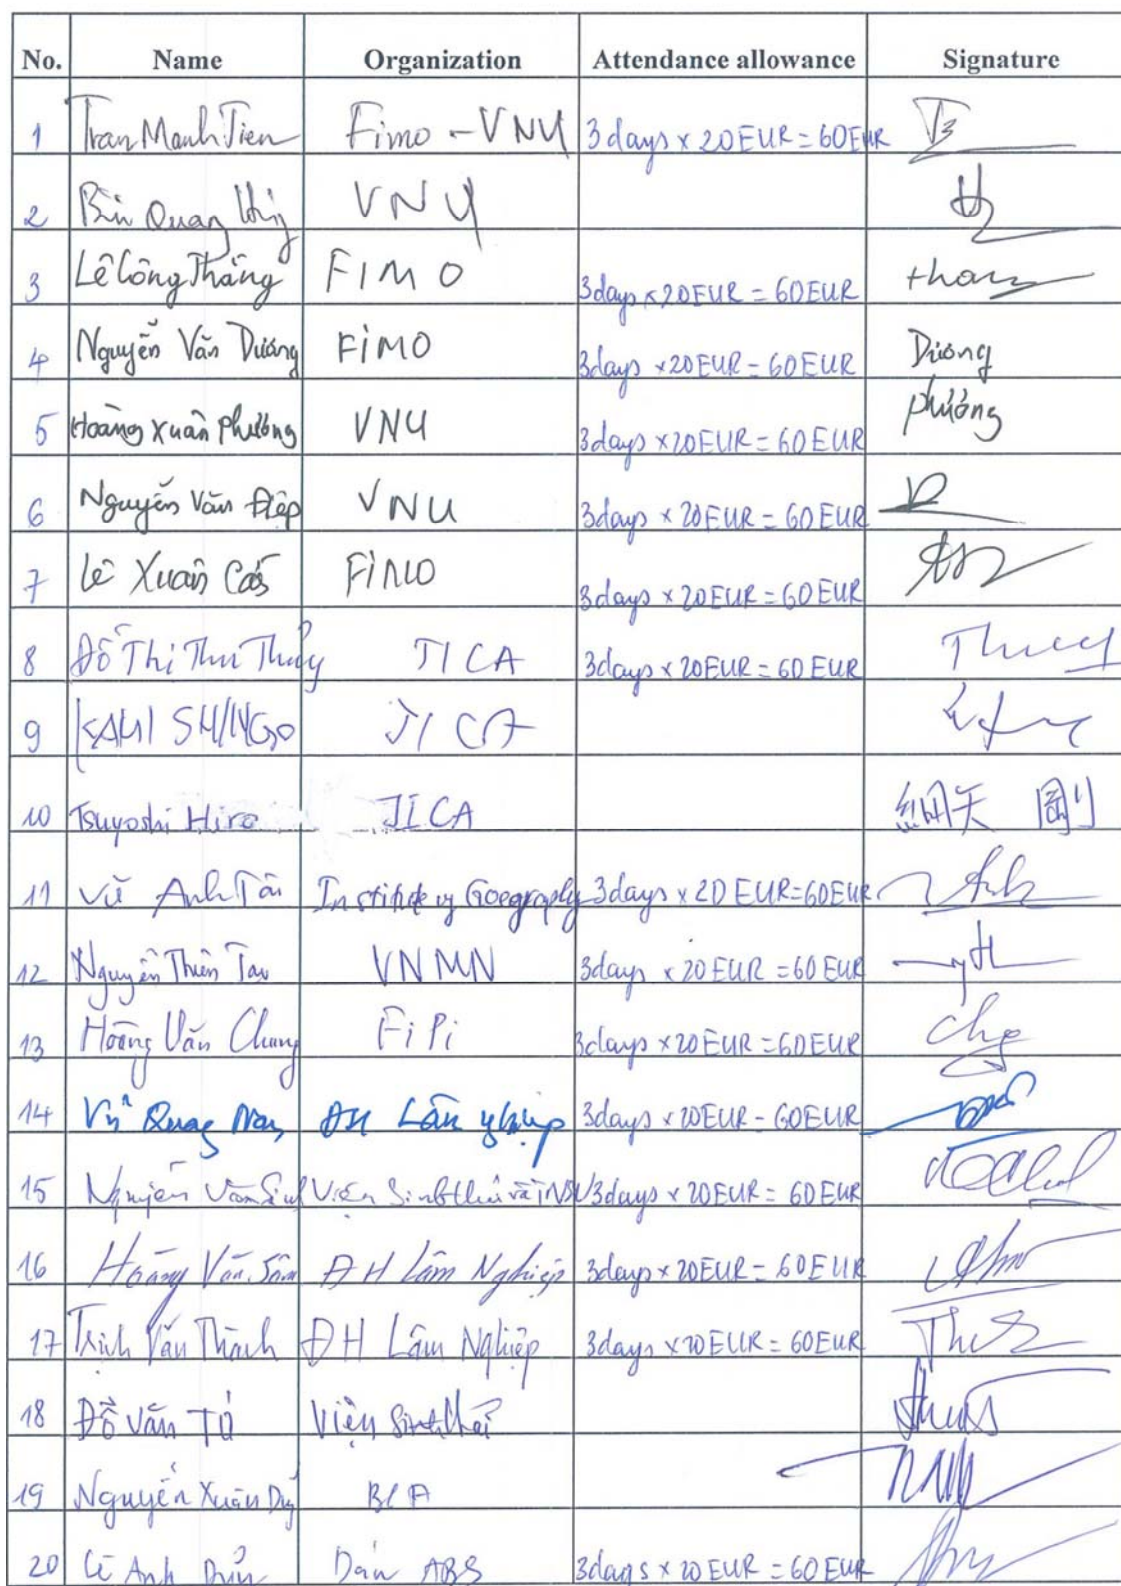 No. Name Organization Attendance allowance Signature
1 Tran Manh Tien Fimo - VNU 3 days x 20 EUR = 60 EUR
2 Bùi Quang VNU
3 Lê Công Thắng FIMO 3days x 20 EUR = 60 EUR thang
4 Nguyễn Văn Dương FIMO 3days x 20 EUR = 60 EUR Dương
5 Hoàng Xuân Phương VNU 3days x 20 EUR = 60 EUR phương
6 Nguyễn Văn Điệp VNU 3days x 20 EUR = 60 EUR
7 Lê Xuân FIMO 3days x 20 EUR = 60 EUR
8 Đỗ Thị Thu Thủy JICA 3days x 20 EUR = 60 EUR Thuy
9 SHINGO JICA
10 Tsuyoshi Hiro JICA 細矢 剛
11 Vũ Anh Tài Institute of Goegraphy 3days x 20 EUR = 60 EUR Anh
12 Nguyễn Thiên Tao VNMN 3days x 20 EUR = 60 EUR
13 Hoàng Văn Chung FiPi 3days x 20 EUR = 60 EUR
14 Vũ Quang Nam ĐH Lâm nghiệp 3days x 20 EUR = 60 EUR
15 Nguyễn Văn Sinh Viện Sinh thái và TNSV 3days x 20 EUR = 60 EUR
16 Hoàng Văn Sâm ĐH Lâm Nghiệp 3days x 20 EUR = 60 EUR
17 Trịnh Văn Thành ĐH Lâm Nghiệp 3days x 20 EUR = 60 EUR
18 Đỗ Văn Tứ Viện Sinh thái
19 Nguyễn Xuân BCA
20 Lê Anh ABS 3days x 20 EUR = 60 EUR